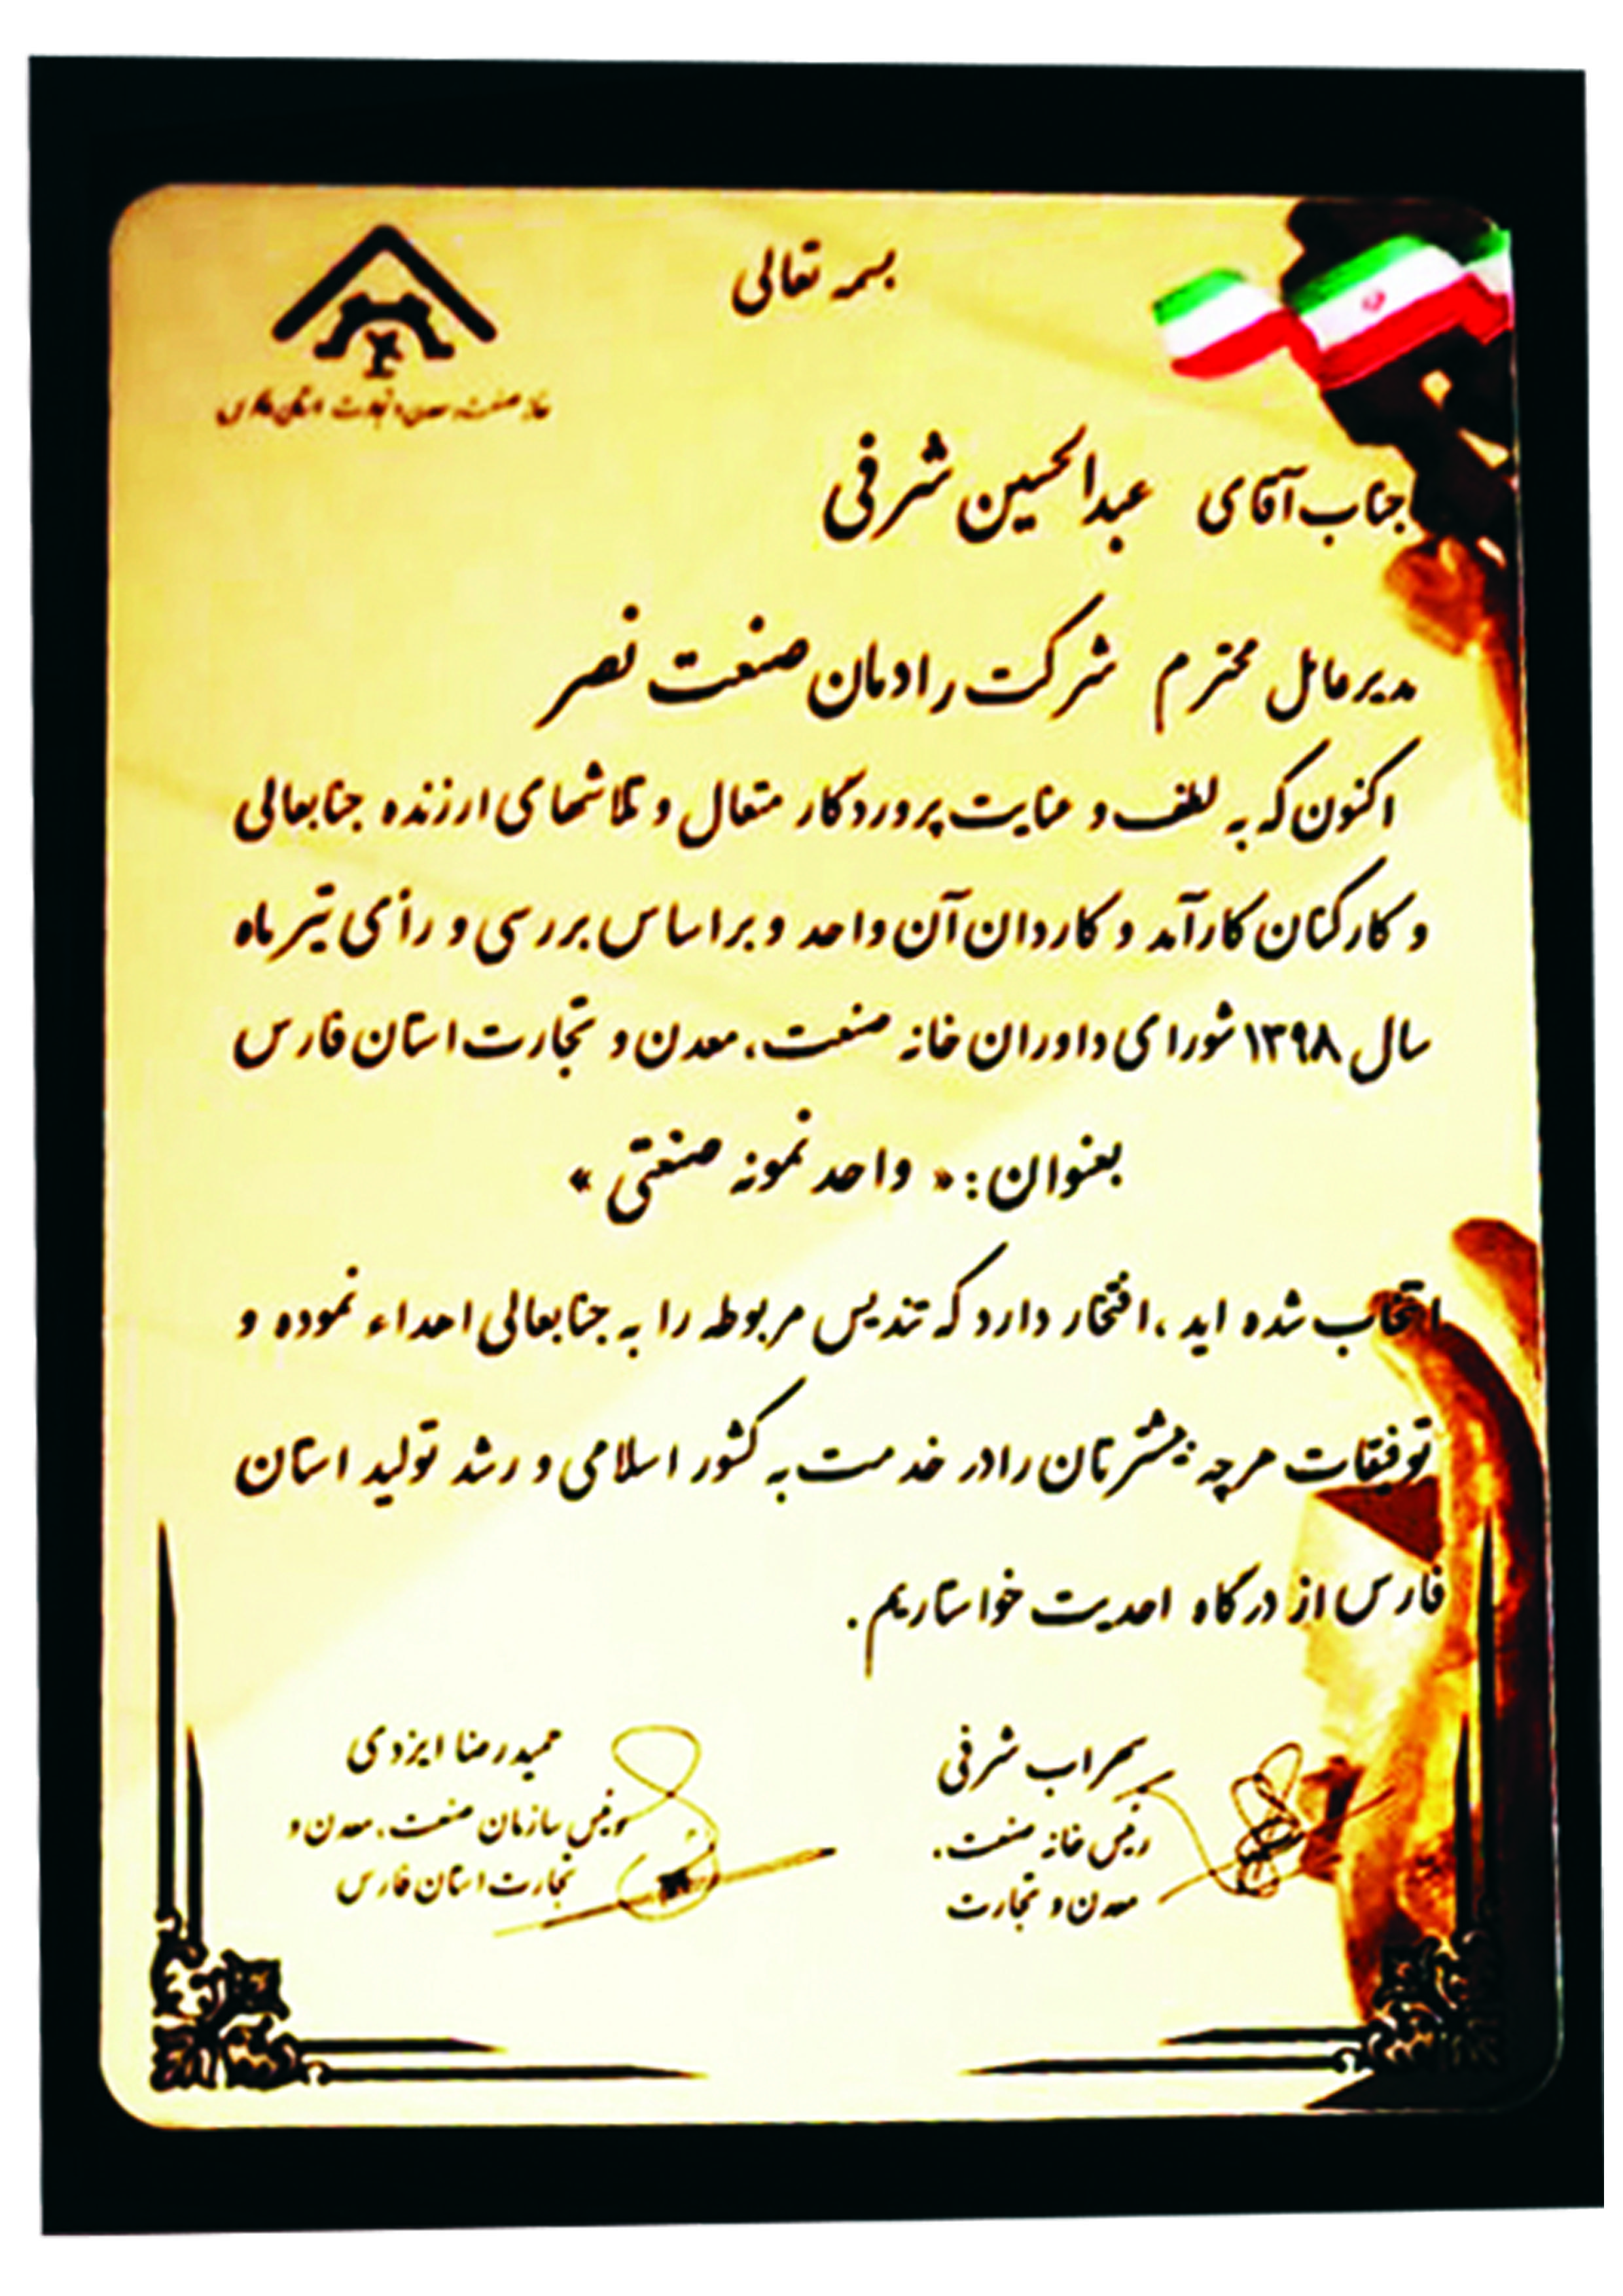 بسمه تعالی
خانه صنعت، معدن و تجارت استان فارس
جناب آقای عبدالحسین شرفی
مدیرعامل محترم شرکت رادمان صنعت نصر
اکنون که به لطف و عنایت پروردگار متعال و تلاشهای ارزنده جنابعالی
و کارکنان کارآمد و کاردان آن واحد و براساس بررسی و رأی تیر ماه
سال ۱۳۹۸ شورای داوران خانه صنعت، معدن و تجارت استان فارس
بعنوان: « واحد نمونه صنعتی »
انتخاب شده اید ، افتخار دارد که تندیس مربوطه را به جنابعالی اهداء نموده و
توفیقات هرچه بیشترتان را در خدمت به کشور اسلامی و رشد تولید استان
فارس از درگاه احدیت خواستاریم .
سهراب شرفی
رئیس خانه صنعت،
معدن و تجارت
حمیدرضا ایزدی
رئیس سازمان صنعت، معدن و
تجارت استان فارس